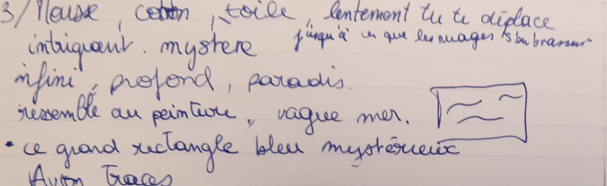 3/ Mousse, coton, toile, lentement tu te déplace
intriguant. mystere jusqu'à ce que les nuages s'embrassent
infini, profond, paradis.
ressemble au peinture, vague mer.
• ce grand rectangle bleu mystérieux
Avion Traces